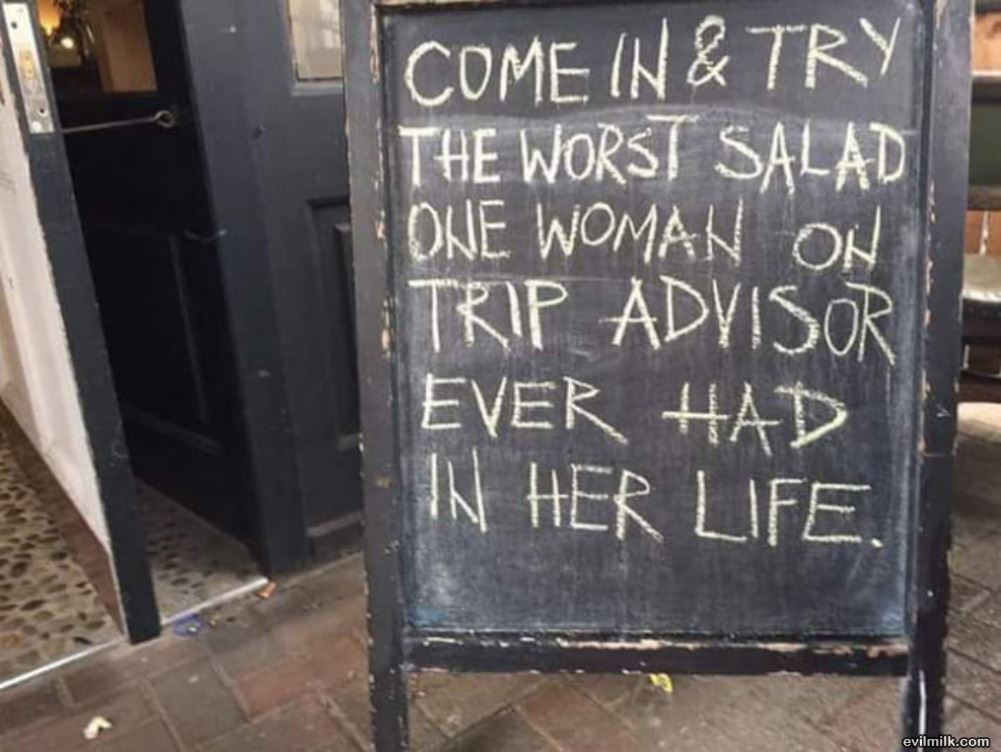 COME IN & TRY
THE WORST SALAD
ONE WOMAN ON
TRIP ADVISOR
EVER HAD
IN HER LIFE.
evilmilk.com